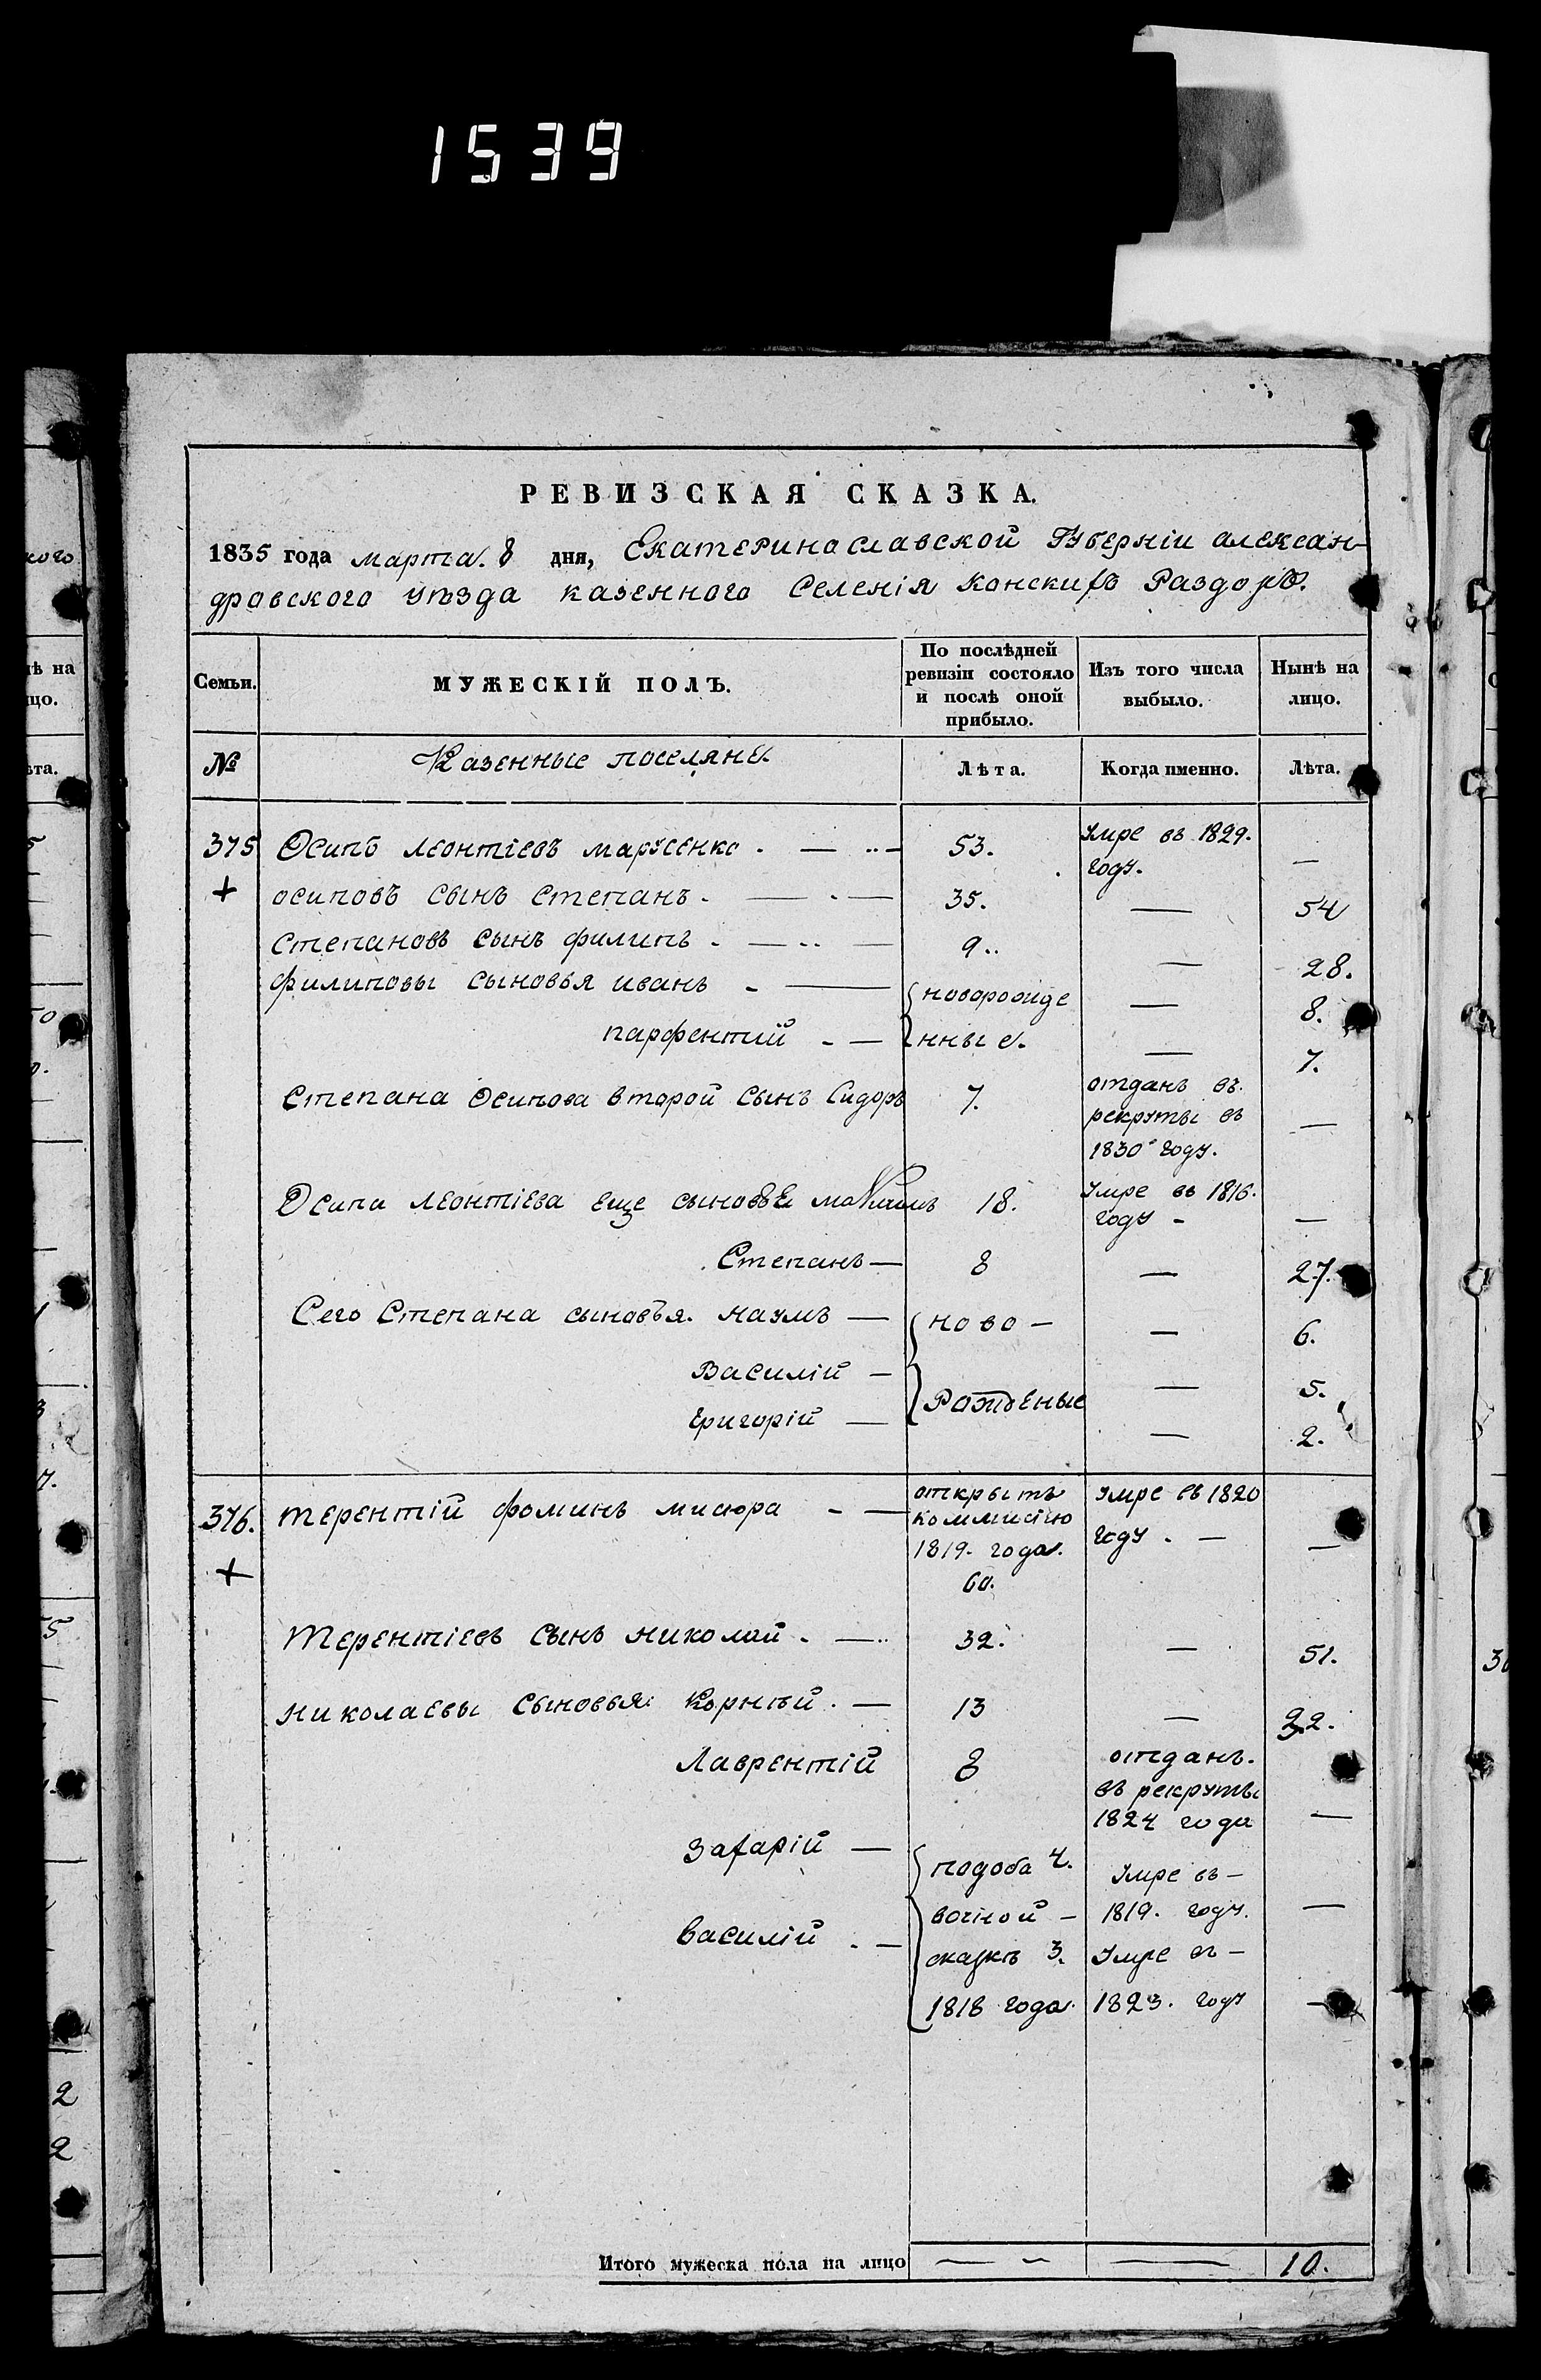 1539
РЕВИЗСКАЯ СКАЗКА.
1835 года марта. 8 дня, Екатеринославской Губерніи алексан-
дровского уѣзда казенного Селенія Конскихъ Раздоръ.
Семьи. МУЖЕСКІЙ ПОЛЪ. По послѣдней ревизіи состояло и послѣ оной прибыло. Изъ того числа выбыло. Нынѣ на лицо.
№ Казенные поселяне. Лѣта. Когда именно. Лѣта.
375 Осипъ Леонтіевъ марусенко . — 53. Умре въ 1829. году. —
+ осиповъ сынъ степанъ . — 35. — 54
степановъ сынъ филипъ . — 9.. — 28.
филиповы сыновья иванъ - — новорожде — 8.
парфентій - — нные. — 7.
Степана Осипова второй сынъ Сидоръ 7. отданъ въ рекруты въ 1830 году. —
Осипа Леонтіева еще сыновья 18. Умре въ 1816. году - —
Степанъ — 8 — 27.
Сего Степана сыновья. Наумъ — ново - — 6.
Василій — Рожденые — 5.
Григорій — — 2.
376. Терентій фоминъ мисюра - — открытъ коммисіею 1819. года. 60. умре въ 1820 году . — —
+
Терентіевъ сынъ николай . — 32. — 51.
николаевы сыновья: Корнѣй . — 13 — 32.
Лаврентій 8 отданъ. въ рекруты 1824 года —
Захарій — подоба 4. Умре въ —
вочной — 1819. году. —
Василій . — сказкѣ 3. Умре въ —
1818 года. 1823. году —
Итого мужеска пола на лицо — — — 10.